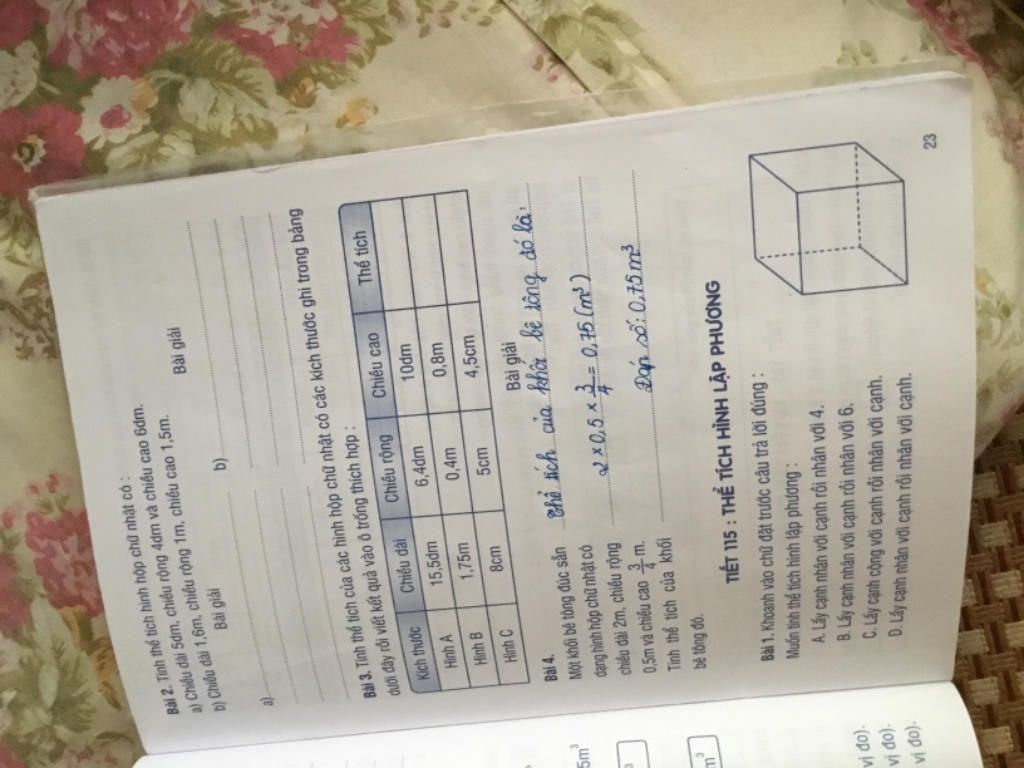 Bài 2. Tính thể tích hình hộp chữ nhật có :
a) Chiều dài 5dm, chiều rộng 4dm và chiều cao 6dm.
b) Chiều dài 1,6m, chiều rộng 1m, chiều cao 1,5m.
Bài giải Bài giải
a) b)
Bài 3. Tính thể tích của các hình hộp chữ nhật có các kích thước ghi trong bảng
dưới đây rồi viết kết quả vào ô trống thích hợp :
Kích thước Chiều dài Chiều rộng Chiều cao Thể tích
Hình A 15,5dm 6,4dm 10dm
Hình B 1,75m 0,4m 0,8m
Hình C 8cm 5cm 4,5cm
Bài 4.
Một khối bê tông đúc sẵn
dạng hình hộp chữ nhật có
chiều dài 2m, chiều rộng
0,5m và chiều cao 3/4 m.
Tính thể tích của khối
bê tông đó.
Bài giải
Thể tích của khối bê tông đó là:
2 x 0,5 x 3/4 = 0,75 (m³)
Đáp số: 0,75 m³
TIẾT 115 : THỂ TÍCH HÌNH LẬP PHƯƠNG
Bài 1. Khoanh vào chữ đặt trước câu trả lời đúng :
Muốn tính thể tích hình lập phương :
A. Lấy cạnh nhân với cạnh rồi nhân với 4.
B. Lấy cạnh nhân với cạnh rồi nhân với 6.
C. Lấy cạnh cộng với cạnh rồi nhân với cạnh.
D. Lấy cạnh nhân với cạnh rồi nhân với cạnh.
23
5m³
m³
vị đo).
vị đo).
vị đo).